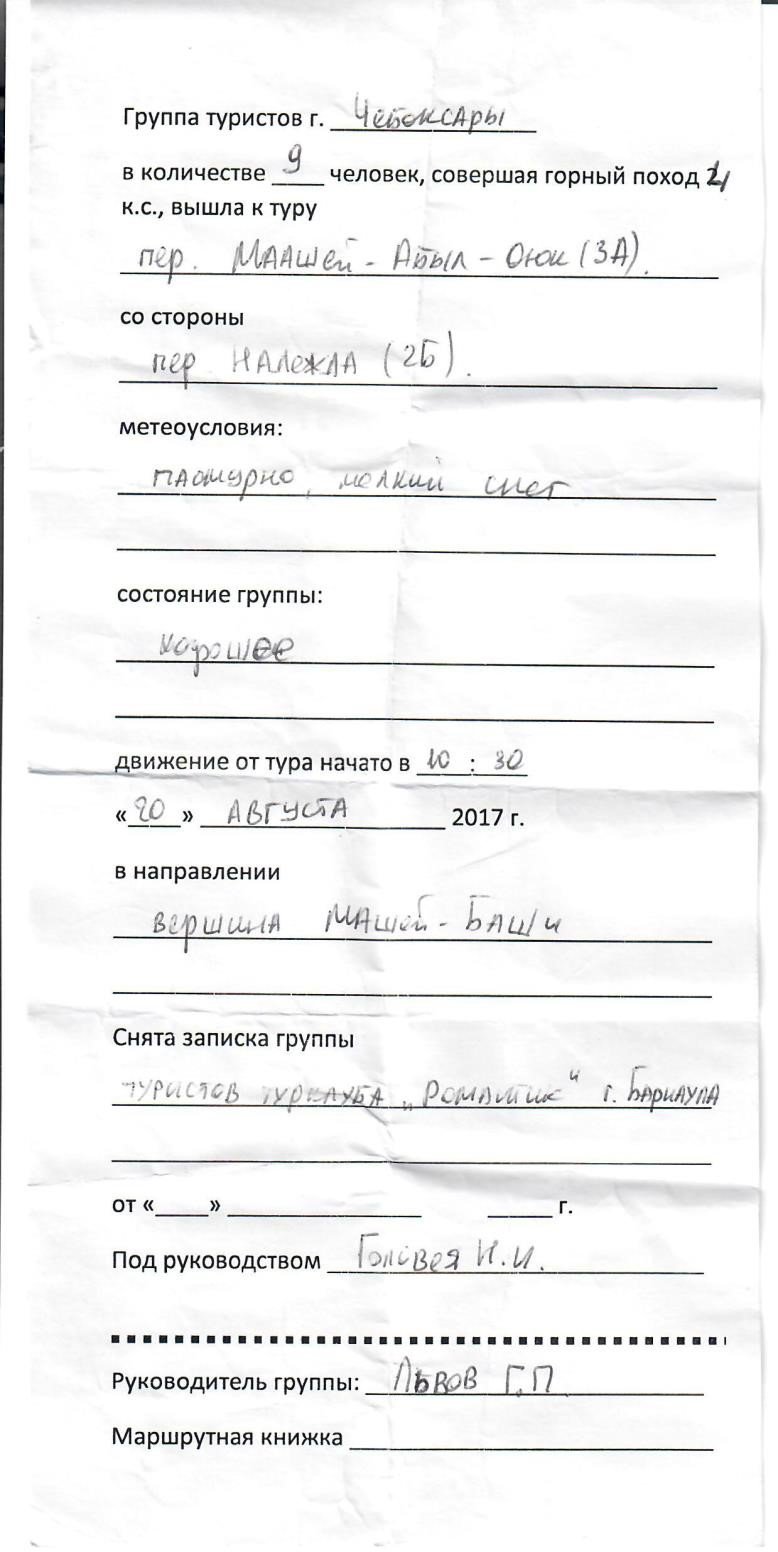 Группа туристов г. Чебоксары
в количестве 9 человек, совершая горный поход
к.с., вышла к туру
пер. Маашей - Абыл - Оюк (3А).
со стороны
пер Надежда (2Б).
метеоусловия:
пасмурно, мелкий снег
состояние группы:
хорошее
движение от тура начато в 10 : 30
«20» августа 2017 г.
в направлении
вершина Машей - Баши
Снята записка группы
туристов турклуба „Романтик" г. Барнаула
от «____» ________ _____ г.
Под руководством И.И.
Руководитель группы: Львов Г.П.
Маршрутная книжка